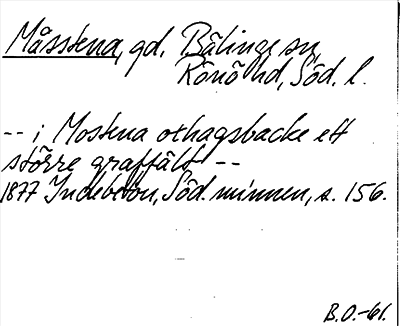 Måsstena, gd. Bälinge sn,
Rönö hd, Söd. l.
-- i Mostena othagsbacke ett
större graffält --
1877 Indebetou, Söd. minnen, s. 156.
B.O.-61.